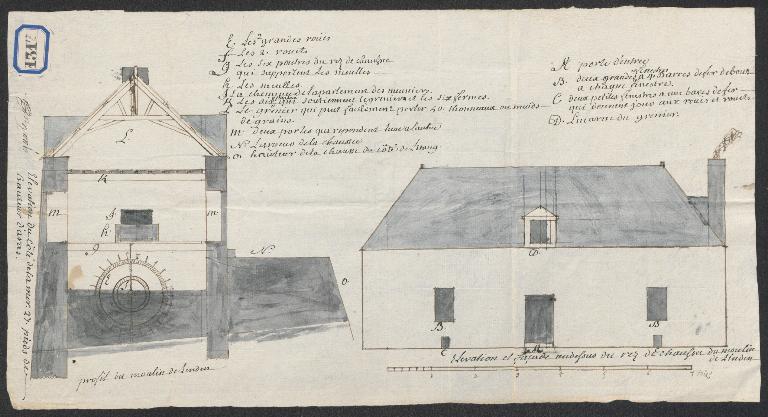 131E
E Les 2 grandes roües
f Les 2. rouets
g Les six poutres du rez de chaussee
qui supportent Les meulles
h Les meulles.
J La cheminee de lapartement des meuniers.
K Les six qui soutiennent le grenier et les six fermes.
L Le grenier qui peut facilement porter 40 thonneaux ou muids
de grains.
m deux portes qui repondent
N Largeur de la chaussee
o hauteur de la chausse du côté de Letang
A porte dentreé
B. deux grandes fenetres a 4 Barres de fer debout
a chaque fenestre.
C deux petites fenestres a une barre de fer
qui donnent jour aux roües et rouets
D. Lucarne du grenier.
L
K
m
m
J
h
g
N.
o
D
B
B
C
A
Elevation du côté de la mer 27 pieds de
hauteur
profil du moulin de Lindin
Elevation et façade audessus du rez de chaussee du moulin
de Lindin